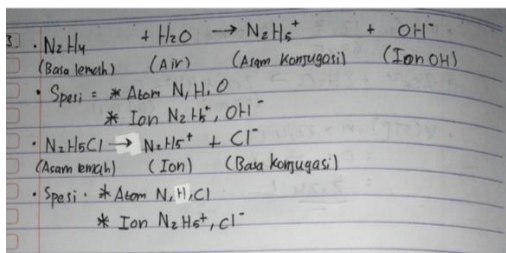 3. • N₂H₄ + H₂O → N₂H₅⁺ + OH⁻
(Basa lemah) (Air) (Asam Konjugasi) (Ion OH)
• Spesi = * Atom N, H, O
* Ion N₂H₅⁺, OH⁻
• N₂H5Cl → N₂H5⁺ + Cl⁻
(Asam lemah) (Ion) (Basa Konjugasi)
• Spesi • * Atom N, H, Cl
* Ion N₂H₅⁺, Cl⁻